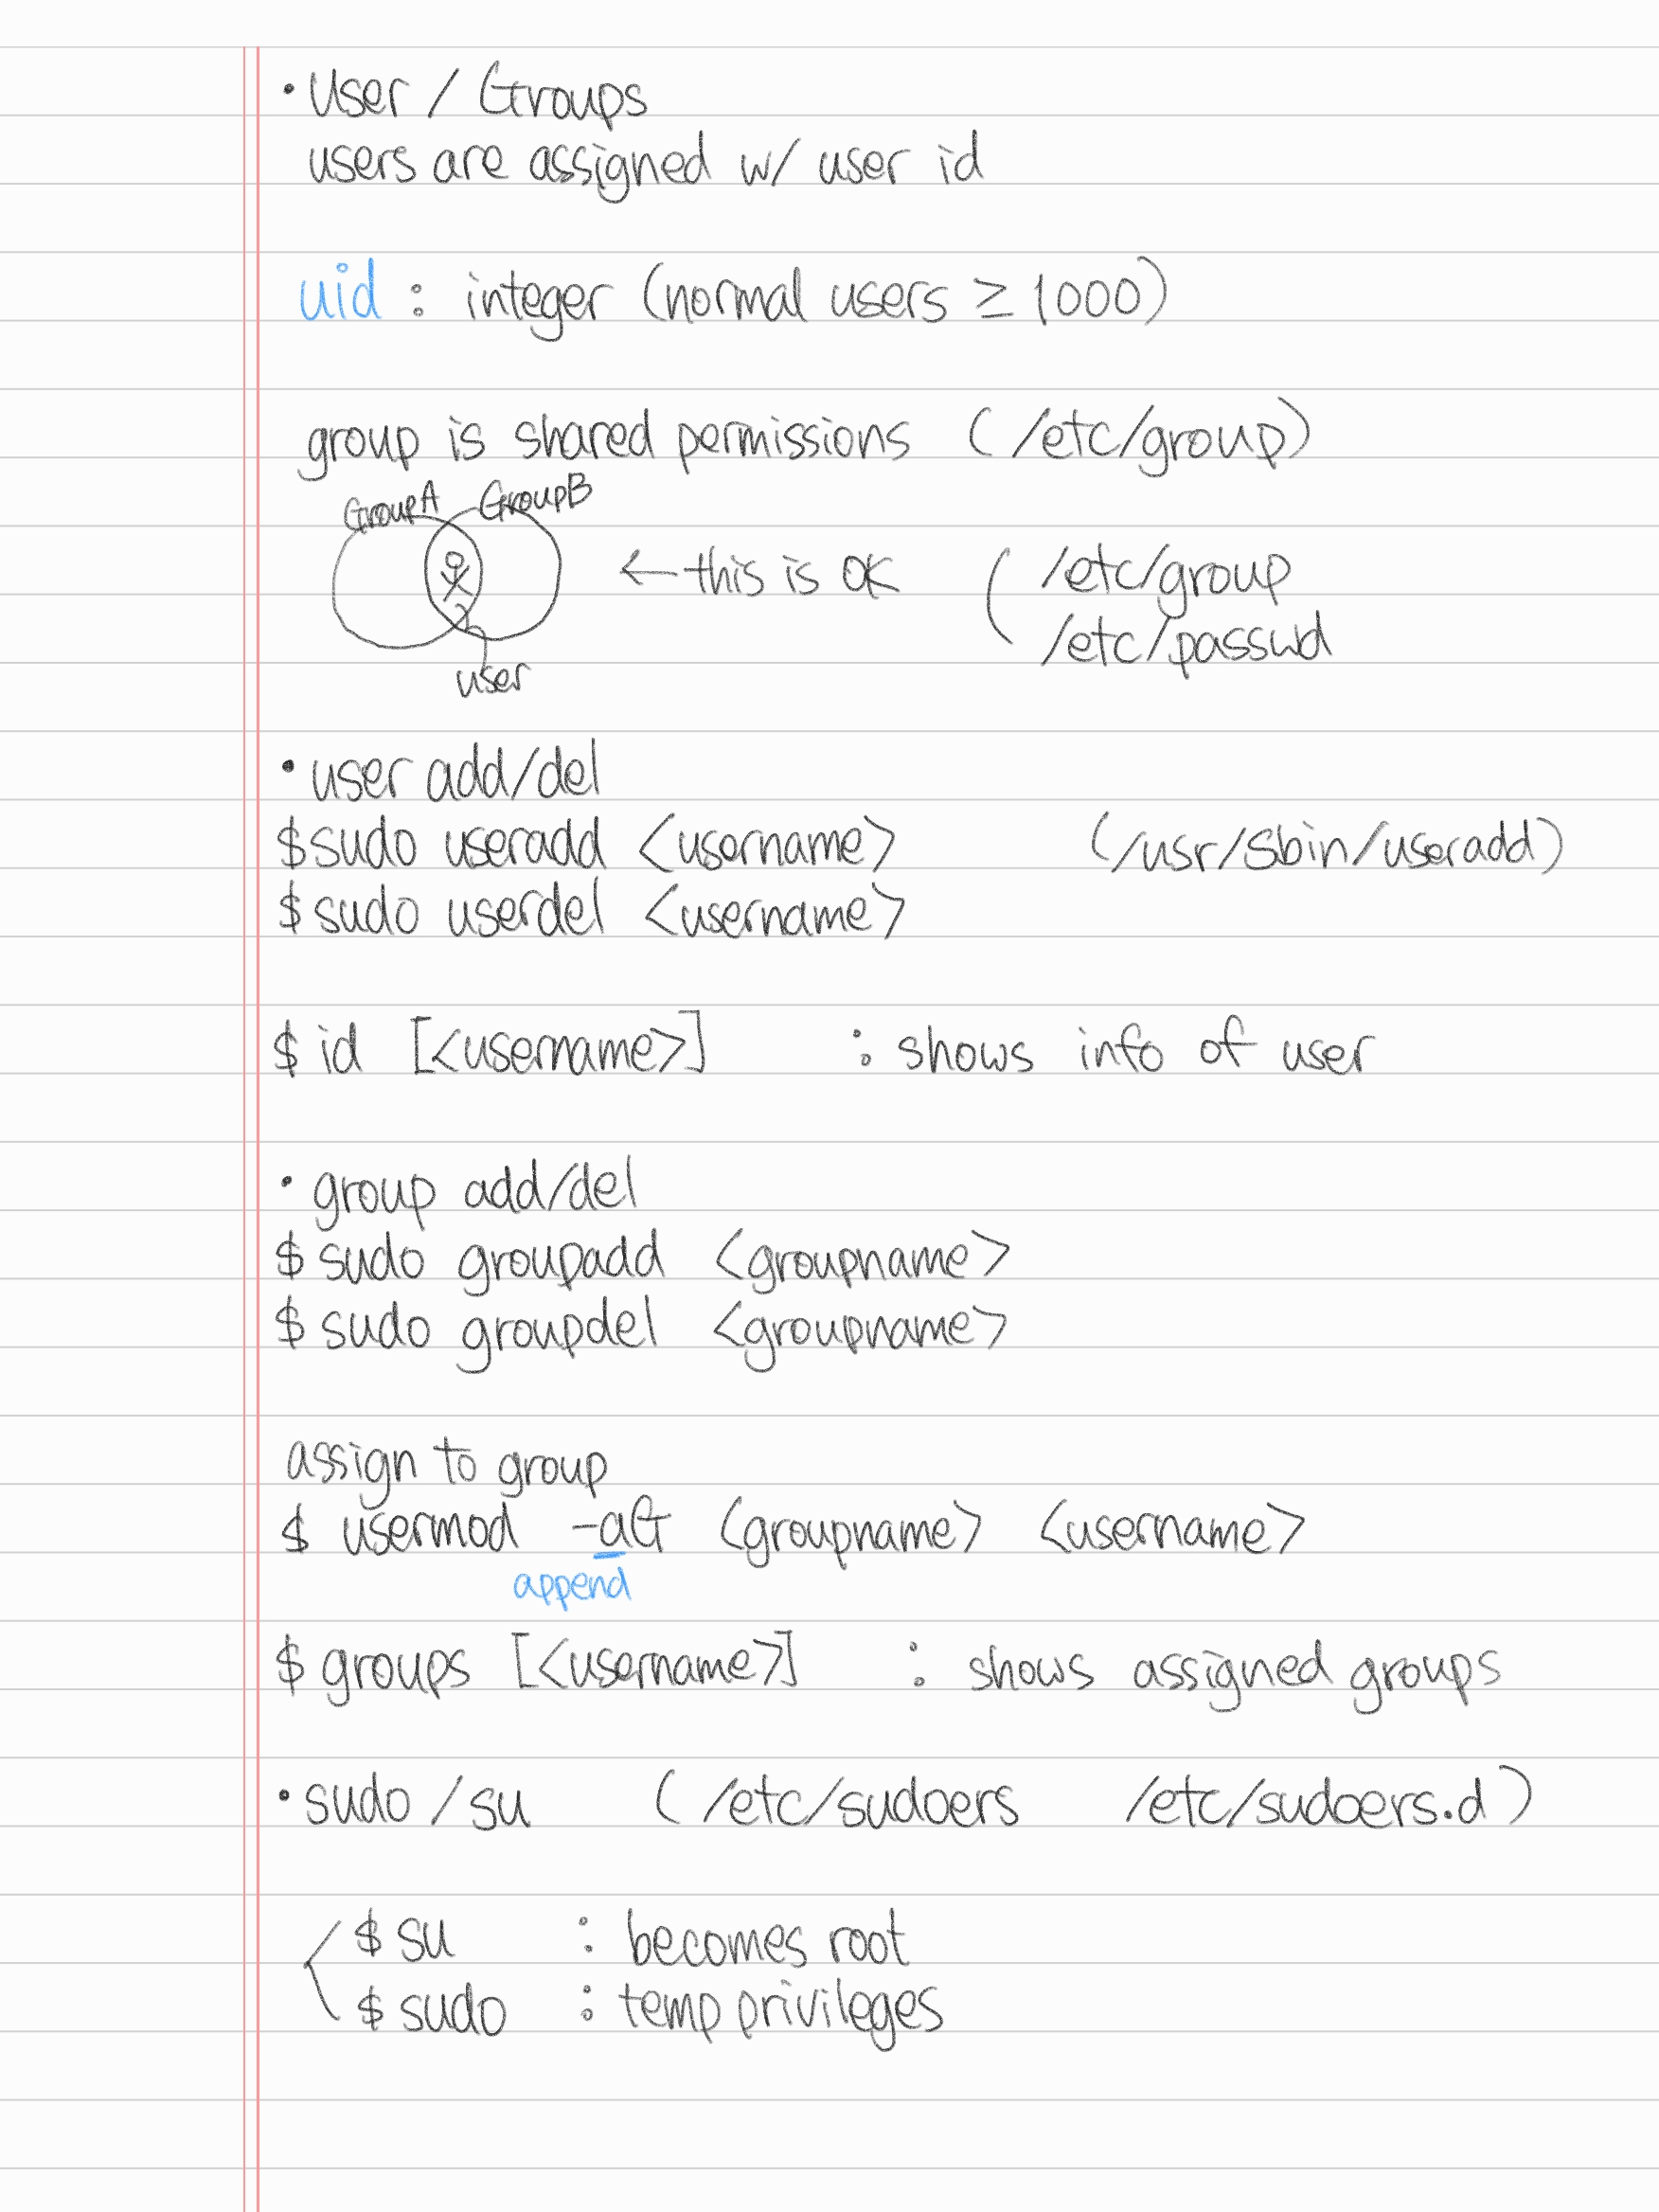 • User / Groups
users are assigned w/ user id
uid : integer (normal users ≥ 1000)
group is shared permissions (/etc/group)
GroupA GroupB
← this is OK ( /etc/group
/etc/passwd
user
• user add/del
$ sudo useradd <username> (/usr/sbin/useradd)
$ sudo userdel <username>
$ id [<username>] : shows info of user
• group add/del
$ sudo groupadd <groupname>
$ sudo groupdel <groupname>
assign to group
$ usermod -aG <groupname> <username>
append
$ groups [<username>] : shows assigned groups
• sudo / su ( /etc/sudoers /etc/sudoers.d )
$ su : becomes root
$ sudo : temp privileges